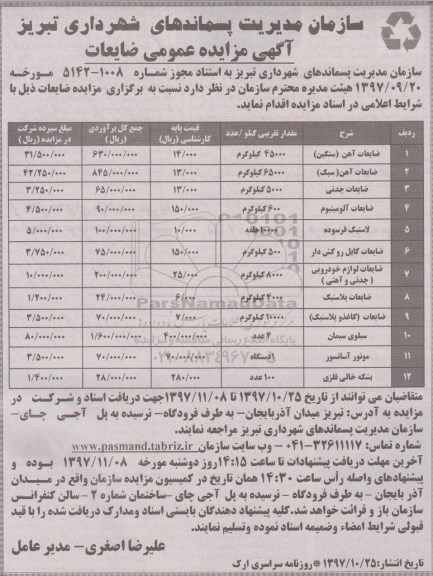 سازمان مدیریت پسماندهای شهرداری تبریز
آگهی مزایده عمومی ضایعات
سازمان مدیریت پسماندهای شهرداری تبریز به استناد مجوز شماره ۱۰۰۸-۵۱۴۲ مورخه
۱۳۹۷/۰۹/۲۰ هیئت مدیره محترم سازمان در نظر دارد نسبت به برگزاری مزایده ضایعات ذیل با
شرایط اعلامی در اسناد مزایده اقدام نماید.
ردیف شرح مقدار تقریبی کیلو /عدد قیمت پایه کارشناسی (ریال) جمع کل برآوردی (ریال) مبلغ سپرده شرکت در مزایده (ریال)
۱ ضایعات آهن (سنگین) ۴۵۰۰۰ کیلوگرم ۱۴/۰۰۰ ۶۳۰/۰۰۰/۰۰۰ ۳۱/۵۰۰/۰۰۰
۲ ضایعات آهن (سبک) ۶۵۰۰۰ کیلوگرم ۱۳/۰۰۰ ۸۴۵/۰۰۰/۰۰۰ ۴۲/۲۵۰/۰۰۰
۳ ضایعات چدنی ۵۰۰۰ کیلوگرم ۱۳/۰۰۰ ۶۵/۰۰۰/۰۰۰ ۳/۲۵۰/۰۰۰
۴ ضایعات آلومینیوم ۶۰۰ کیلوگرم ۱۵۰/۰۰۰ ۹۰/۰۰۰/۰۰۰ ۴/۵۰۰/۰۰۰
۵ لاستیک فرسوده ۱۰۰۰۰ حلقه ۱۰/۰۰۰ ۱۰۰/۰۰۰/۰۰۰ ۵/۰۰۰/۰۰۰
۶ ضایعات کابل روکش دار ۵۰۰ کیلوگرم ۱۵۰/۰۰۰ ۷۵/۰۰۰/۰۰۰ ۳/۷۵۰/۰۰۰
۷ ضایعات لوازم خودرویی (چدنی و آهنی) ۸۰۰۰ کیلوگرم ۲۵/۰۰۰ ۲۰۰/۰۰۰/۰۰۰ ۱۰/۰۰۰/۰۰۰
۸ ضایعات پلاستیک ۴۰۰۰ کیلوگرم ۶/۰۰۰ ۲۴/۰۰۰/۰۰۰ ۱/۲۰۰/۰۰۰
۹ ضایعات (کاغذو پلاستیک) ۱۰۰۰۰ کیلوگرم ۷/۰۰۰ ۷۰/۰۰۰/۰۰۰ ۳/۵۰۰/۰۰۰
۱۰ سیلوی سیمان ۴ عدد ۴۰۰/۰۰۰/۰۰۰ ۱/۶۰۰/۰۰۰/۰۰۰ ۸۰/۰۰۰/۰۰۰
۱۱ موتور آسانسور ۱دستگاه ۷۰/۰۰۰/۰۰۰ ۷۰/۰۰۰/۰۰۰ ۳/۵۰۰/۰۰۰
۱۲ بشکه خالی فلزی ۱۰۰ عدد ۲۸۰/۰۰۰ ۲۸/۰۰۰/۰۰۰ ۱/۴۰۰/۰۰۰
ParsNamadData
متقاضیان می توانند از تاریخ ۱۳۹۷/۱۰/۲۵ تا ۱۳۹۷/۱۱/۰۸ جهت دریافت اسناد و شرکت در
مزایده به آدرس: تبریز میدان آذربایجان- به طرف فرودگاه- نرسیده به پل آجی چای-
سازمان مدیریت پسماندهای شهرداری تبریز مراجعه نمایند.
شماره تماس: ۳۲۶۱۱۱۱۷-۰۴۱ - وب سایت سازمان www.pasmand.tabriz.ir
آخرین مهلت دریافت پیشنهادات تا ساعت ۱۴:۱۵ روز دوشنبه مورخه ۱۳۹۷/۱۱/۰۸ بوده و
پیشنهادهای واصله رأس ساعت ۱۴:۳۰ همان تاریخ در کمیسیون مزایده سازمان واقع در میدان
آذر بایجان - به طرف فرودگاه - نرسیده به پل آجی چای -ساختمان شماره ۲ - سالن کنفرانس
سازمان باز و قرائت خواهد شد. کلیه پیشنهاد دهندگان بایستی اسناد ومدارک دریافت شده را با قید
قبولی شرایط امضاء وضمیمه اسناد نموده وتسلیم نمایند.
علیرضا اصغری- مدیر عامل
تاریخ انتشار: ۱۳۹۷/۱۰/۲۵ *روزنامه سراسری ارک